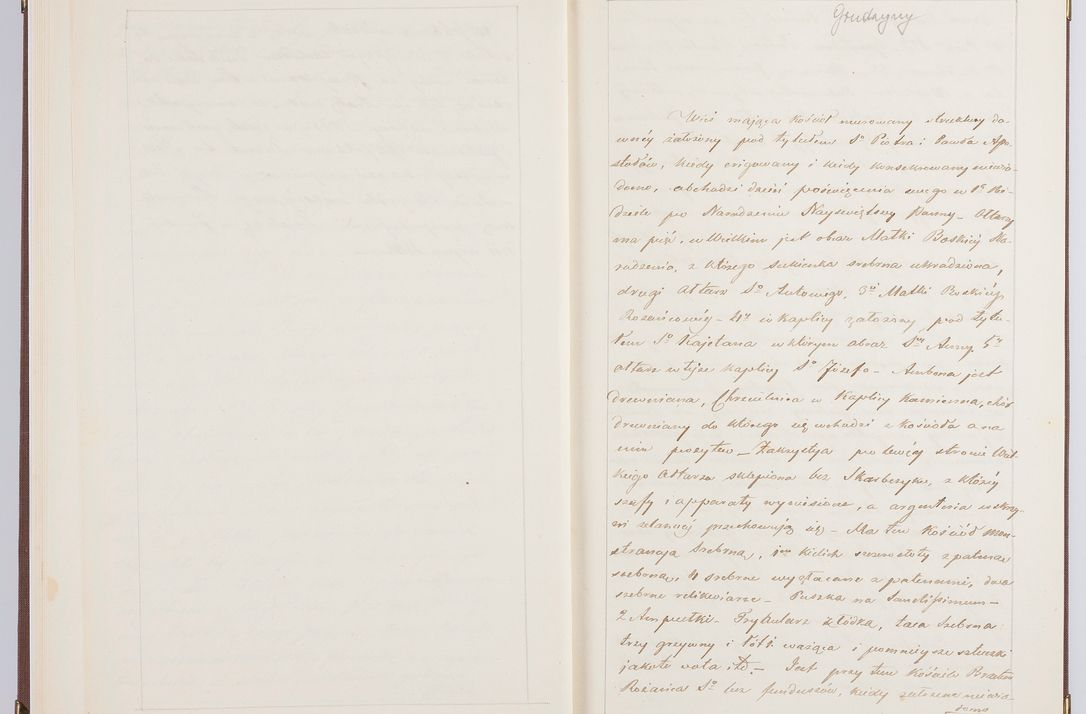 Grudzyny
Wieś mająca kościół murowany struktury da-
wnéy założony pod tytułem Sº Piotra i Pawła Apo-
stołów, kiedy erigowany i kiedy konsekrowany niewia-
domo, obchodzi dzień poświęcenia swego w 1ą Nie-
dzielę po Narodzeniu Nayświętszey Panny – Ołtarzy
ma pięć, w Wielkim jest obraz Matki Boskiéy Na-
rodzenia, z którego sukienka srebrna ukradziona,
drugi ołtarz Sº Antoniego, 3ci Matki Boskiéy
Rożańcowéy – 4ty w kaplicy założony pod tytu-
łem Sº Kajetana w którym obraz Stey Anny, 5ty
ołtarz w téjże kaplicy Sº Józefa – Ambona jest
drewniana, Chrzcielnica w Kaplicy kamienna, chór
drewniany do którego się wchodzi z kościoła a na
nim pozytew – Zakrystya po lewéy stronie Wiel-
kiego ołtarza sklepiona bez Skarbczyku, z któréy
szafy i apparaty wyniesione, a argenteria w skrzy-
ni żelaznéy przechowują się – Ma ten kościół mon-
strancją srebrną, kielich szczerozłoty z pateną
srebrną, 4 srebrne wyzłacane z patenami, dwa
srebrne relikwiarze – Puszka na Sanctissimum –
2 Ampułki – Trybularz łódka, taca srebrna
trzy grzywny i łót 1. ważąca i pomnieysze sztuczki
jakoto vota itd. – Jest przy tém kościele Bractwo
Rożańca Sº bez funduszów, kiedy założone niewia-
domo